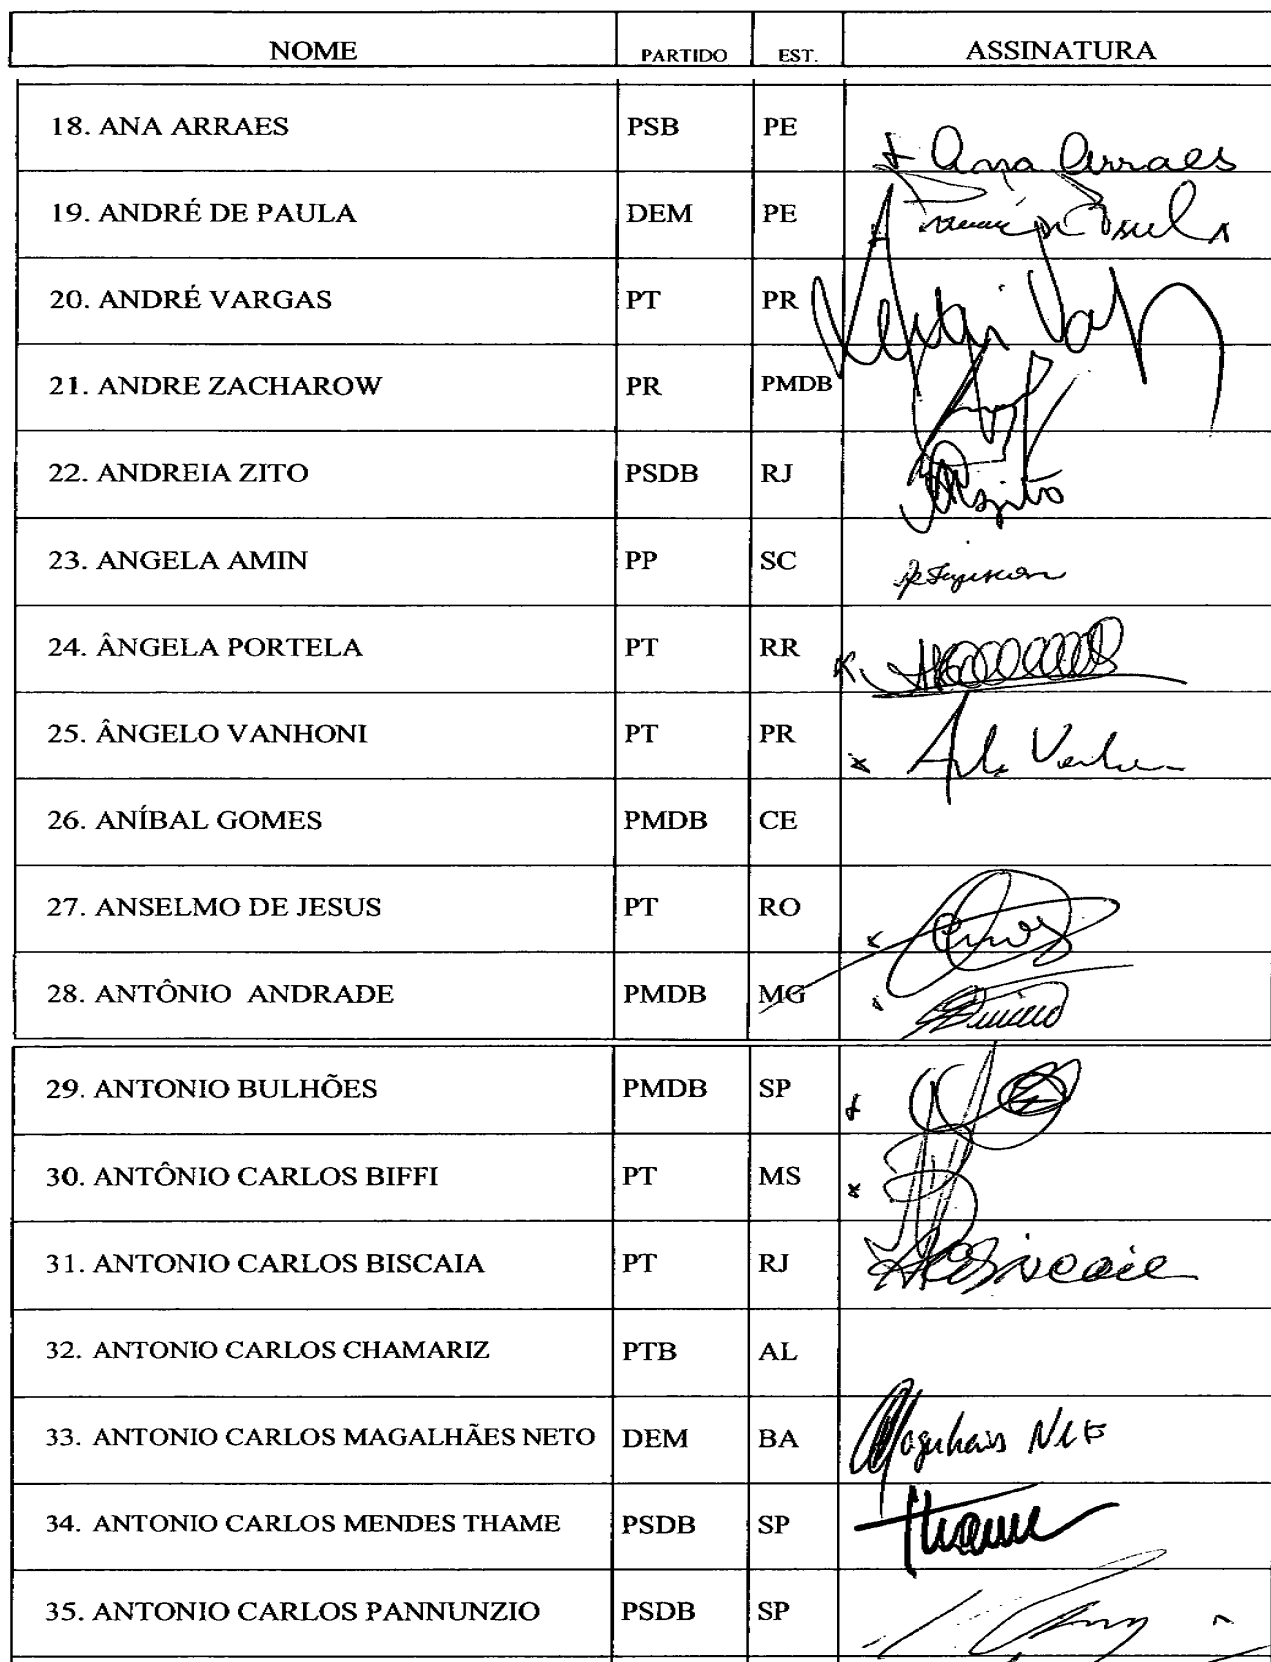 NOME PARTIDO EST. ASSINATURA
18. ANA ARRAES PSB PE Ana Arraes
19. ANDRÉ DE PAULA DEM PE
20. ANDRÉ VARGAS PT PR
21. ANDRE ZACHAROW PR PMDB
22. ANDREIA ZITO PSDB RJ
23. ANGELA AMIN PP SC
24. ÂNGELA PORTELA PT RR
25. ÂNGELO VANHONI PT PR
26. ANÍBAL GOMES PMDB CE
27. ANSELMO DE JESUS PT RO
28. ANTÔNIO ANDRADE PMDB MG
29. ANTONIO BULHÕES PMDB SP
30. ANTÔNIO CARLOS BIFFI PT MS
31. ANTONIO CARLOS BISCAIA PT RJ
32. ANTONIO CARLOS CHAMARIZ PTB AL
33. ANTONIO CARLOS MAGALHÃES NETO DEM BA
34. ANTONIO CARLOS MENDES THAME PSDB SP Thame
35. ANTONIO CARLOS PANNUNZIO PSDB SP